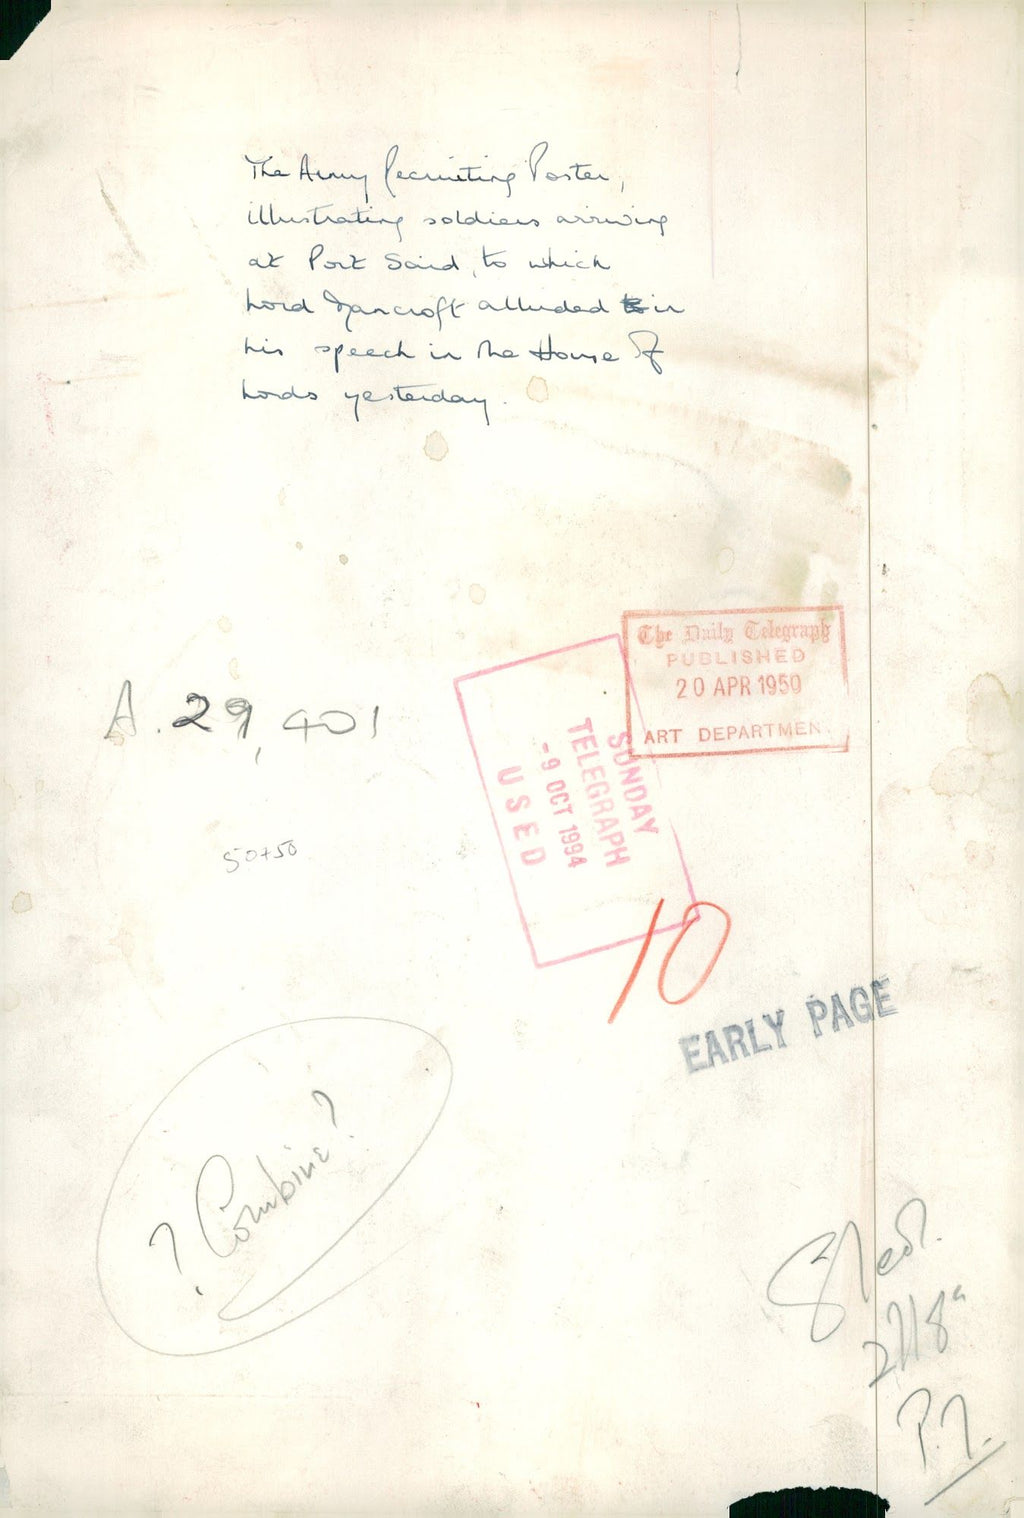 The Army Recruiting Poster,
illustrating soldiers arriving
at Port Said, to which
Lord Mancroft alluded in
his speech in the House of
Lords yesterday.
The Daily Telegraph
PUBLISHED
20 APR 1950
ART DEPARTMEN
SUNDAY
TELEGRAPH
-9 OCT 1994
USED
A. 29,401
50+50
10
EARLY PAGE
? Combine?
P.7.